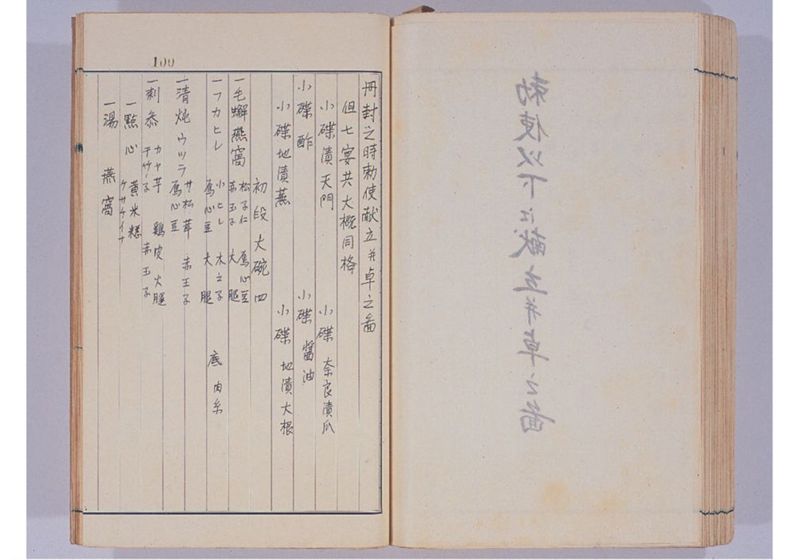 勅使以下江献立并卓之啚
109
冊封之時勅使献立并卓之啚
但七宴共大概同格
小碟漬天門 小碟 奈良漬瓜
小碟 酢 小碟 醤油
小碟地漬蕪 小碟 地漬大根
初段大碗四
一毛蠏燕窩 松子仁 鴈心豆
赤玉子 大腿
一フカヒレ 小ヒレ 木之子
鴈心豆 大腿 底肉糸
一清炖ウツラ サ松茸 赤玉子
鴈心豆
一刺参 カヤ芋 鶏皮 火腿
干竹ノ子 赤玉子
一點心 黄米糕
ケサチイナ
一湯 燕窩